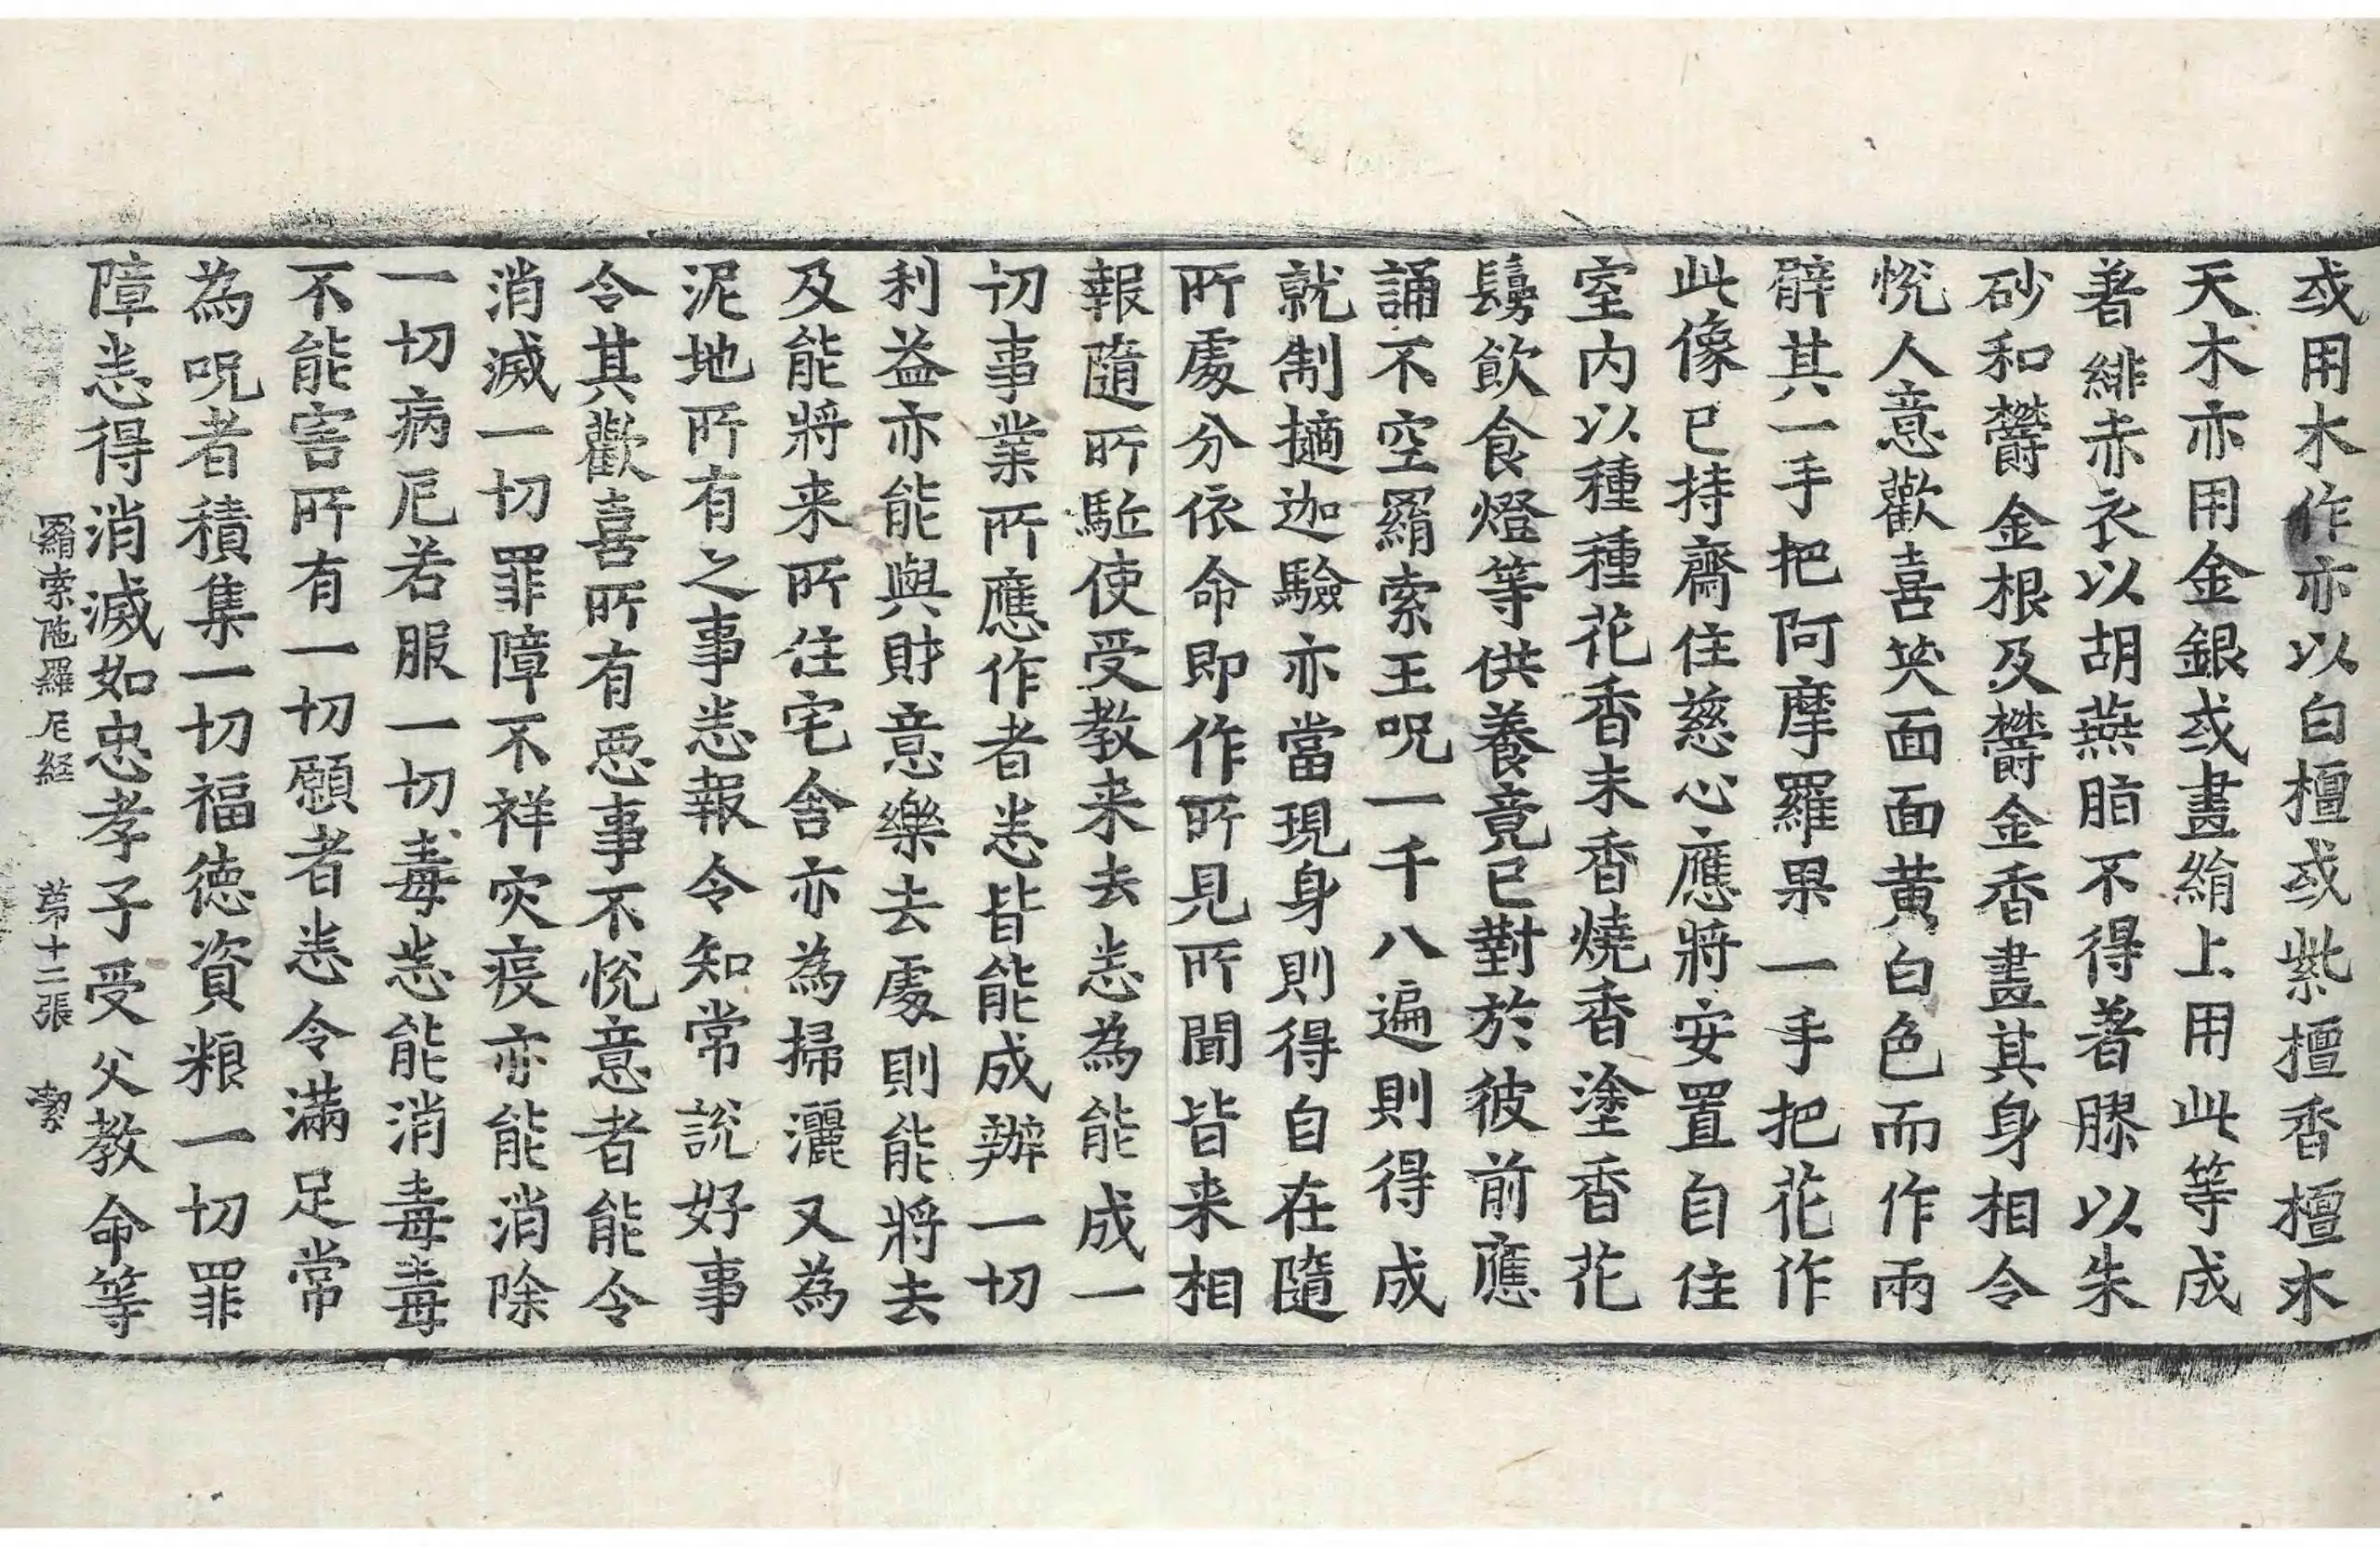 或用木作亦以白檀或紫檀香檀木
天木亦用金銀或畫絹上用此等成
著緋赤衣以胡燕脂不得著膠以朱
砂和欝金根及欝金香畫其身相令
悅人意歡喜笑面面黃白色而作兩
臂其一手把阿摩羅果一手把花作
此像已持齋住慈心應將安置自住
室內以種種花香末香燒香塗香花
鬘飲食燈等供養竟已對於彼前應
誦不空羂索王呪一千八遍則得成
就制擿迦驗亦當現身則得自在隨
所處分依命即作所見所聞皆来相
報隨所駈使受教来去悉為能成一
切事業所應作者悉皆能成辦一切
利益亦能與財意樂去處則能將去
及能將来所住宅舍亦為掃灑又為
泥地所有之事悉報令知常說好事
令其歡喜所有惡事不悅意者能令
消滅一切罪障不祥灾疫亦能消除
一切病厄若服一切毒悉能消毒毒
不能害所有一切願者悉令滿足常
為呪者積集一切福德資粮一切罪
障悉得消滅如忠孝子受父教命等
羂索陁羅尼経 苐十二張 潔